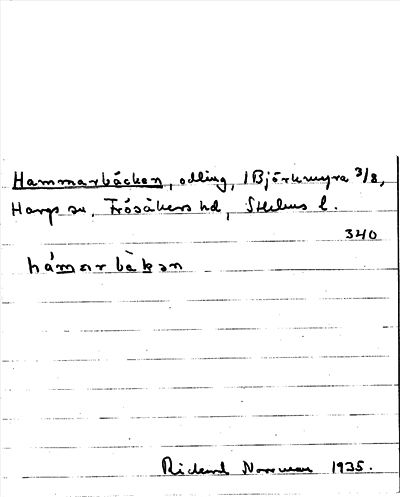 Hammarbäcken, odling, 1 Björkmyra 3/8,
Hargs sn, Frösåkers hd, Sthlms l.
340
hámarbàkən
Rickard 1935.